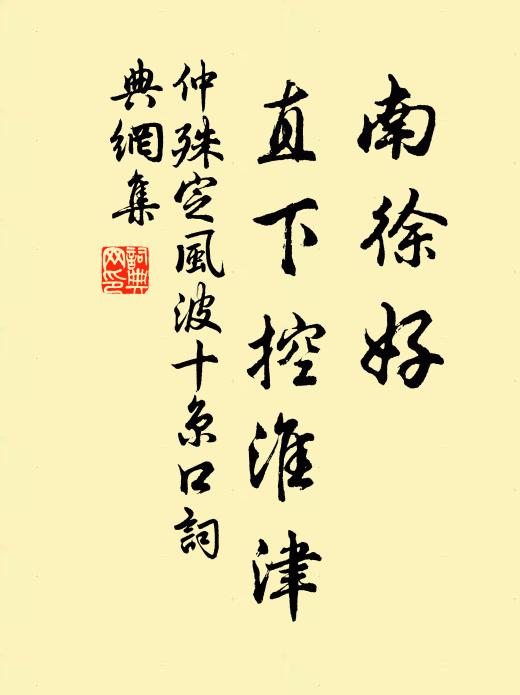 南徐好
直下控淮津
仲殊定風波十京口詞
典網集
詞典網印